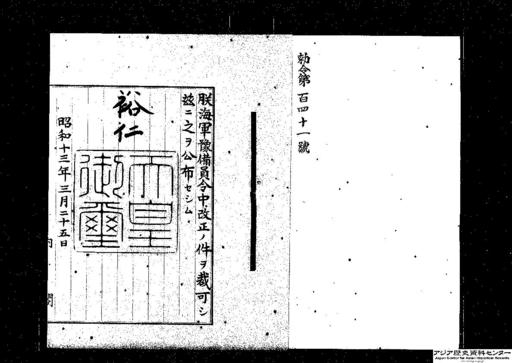 勅令第百四十一號
朕海軍豫備員令中改正ノ件ヲ裁可シ
茲ニ之ヲ公布セシム
裕仁
天皇
御璽
昭和十三年三月二十五日
内閣
アジア歴史資料センター
Japan Center for Asian Historical Records